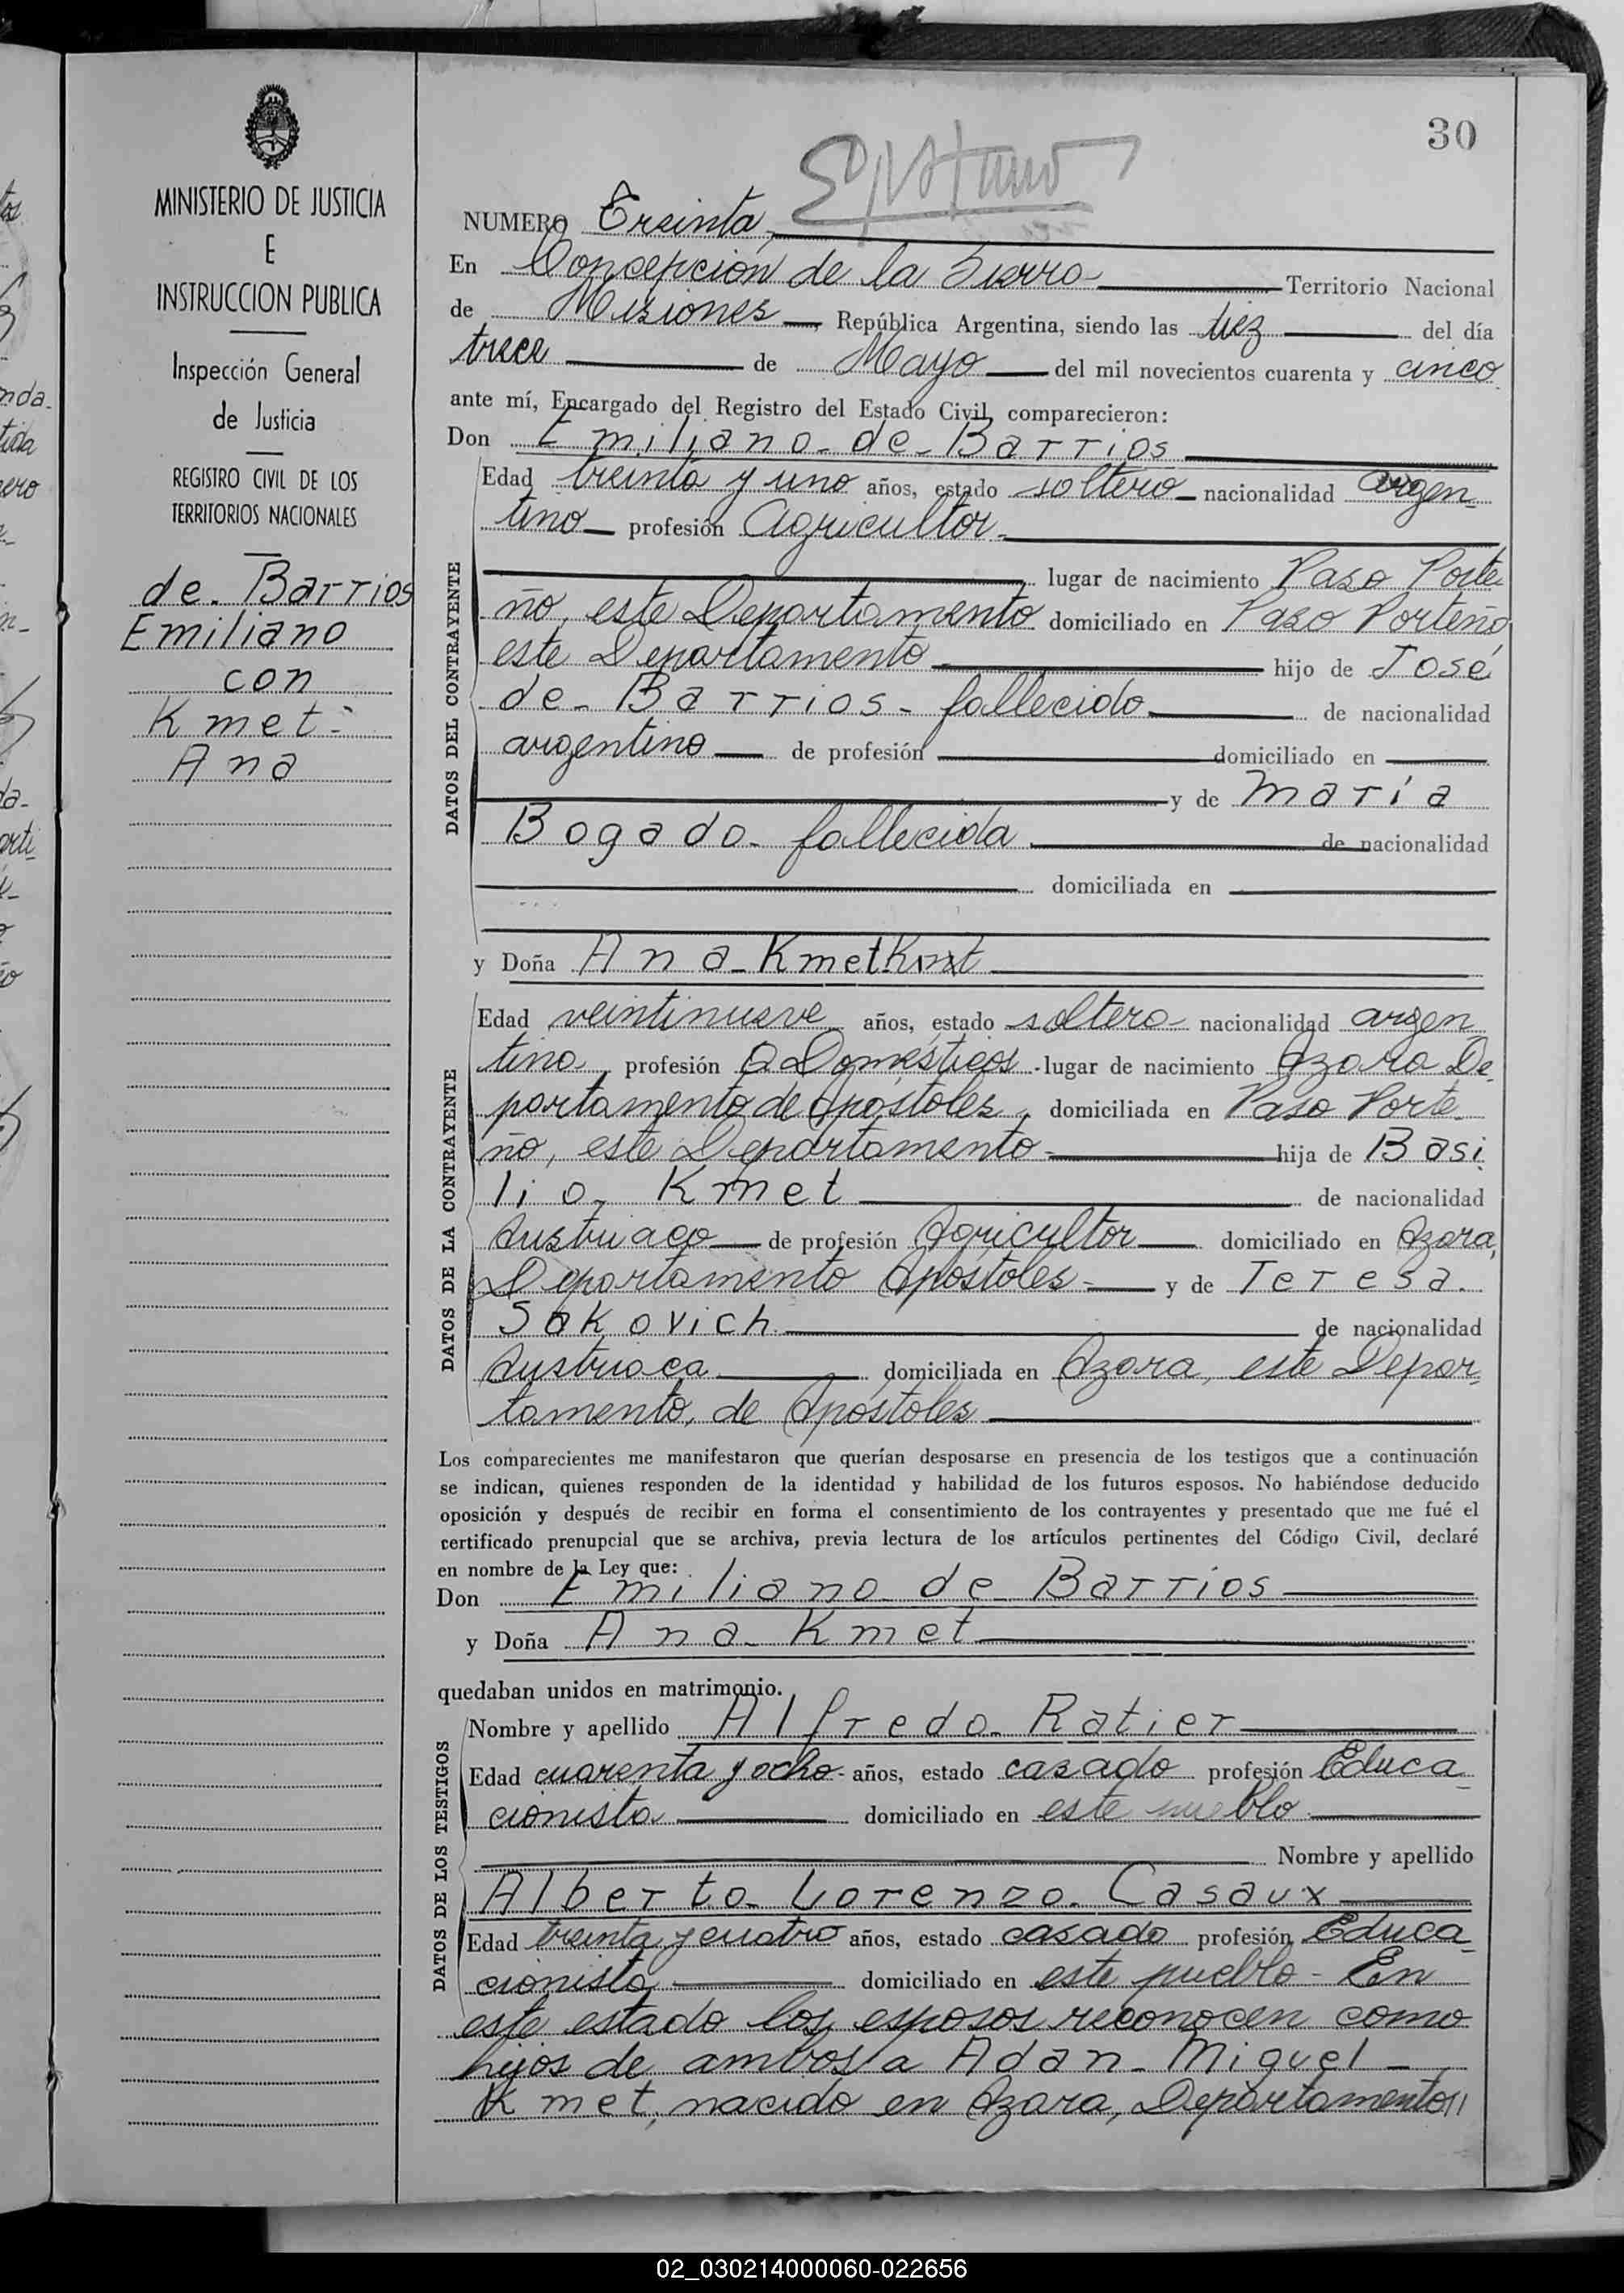 30
MINISTERIO DE JUSTICIA
E
INSTRUCCION PUBLICA
Inspección General
de Justicia
REGISTRO CIVIL DE LOS
TERRITORIOS NACIONALES
de. Barrios
Emiliano
con
Kmet-
Ana
NUMERO Treinta,
En Concepción de la Sierra Territorio Nacional
de Misiones, República Argentina, siendo las diez del día
trece de Mayo del mil novecientos cuarenta y cinco
ante mí, Encargado del Registro del Estado Civil, comparecieron:
Don Emiliano-de-Barrios
DATOS DEL CONTRAYENTE
Edad treinta y uno años, estado soltero nacionalidad argen-
tino profesión Agricultor-
lugar de nacimiento Paso Porte
ño, este Departamento domiciliado en Paso Porteño
este Departamento hijo de José
de-Barrios-fallecido de nacionalidad
argentino de profesión domiciliado en
y de María
Bogado-fallecida de nacionalidad
domiciliada en
y Doña Ana-Kmet
DATOS DE LA CONTRAYENTE
Edad veintinueve años, estado soltera nacionalidad argen
tina, profesión Q Domésticos-lugar de nacimiento Azara De-
partamento de Apóstoles, domiciliada en Paso Porte-
ño, este Departamento- hija de Basi
lio, Kmet de nacionalidad
Austriaco de profesión Agricultor domiciliado en Azara,
Departamento Apóstoles- y de Teresa.
Sakovich de nacionalidad
Austriaca domiciliada en Azara, este Depar-
tamento, de Apóstoles
Los comparecientes me manifestaron que querían desposarse en presencia de los testigos que a continuación
se indican, quienes responden de la identidad y habilidad de los futuros esposos. No habiéndose deducido
oposición y después de recibir en forma el consentimiento de los contrayentes y presentado que me fué el
certificado prenupcial que se archiva, previa lectura de los artículos pertinentes del Código Civil, declaré
en nombre de la Ley que:
Don Emiliano de Barrios
y Doña Ana-Kmet
quedaban unidos en matrimonio.
DATOS DE LOS TESTIGOS
Nombre y apellido Alfredo-Ratier
Edad cuarenta y ocho- años, estado casado profesión Educa-
cionista domiciliado en este pueblo
Nombre y apellido
Alberto-Lorenzo-Casaux
Edad treinta y cuatro años, estado casado profesión Educa-
cionista domiciliado en este pueblo-En
este estado los esposos reconocen como
hijos de ambos a Adan-Miguel-
Kmet, nacido en Azara, Departamento//
02_030214000060-022656